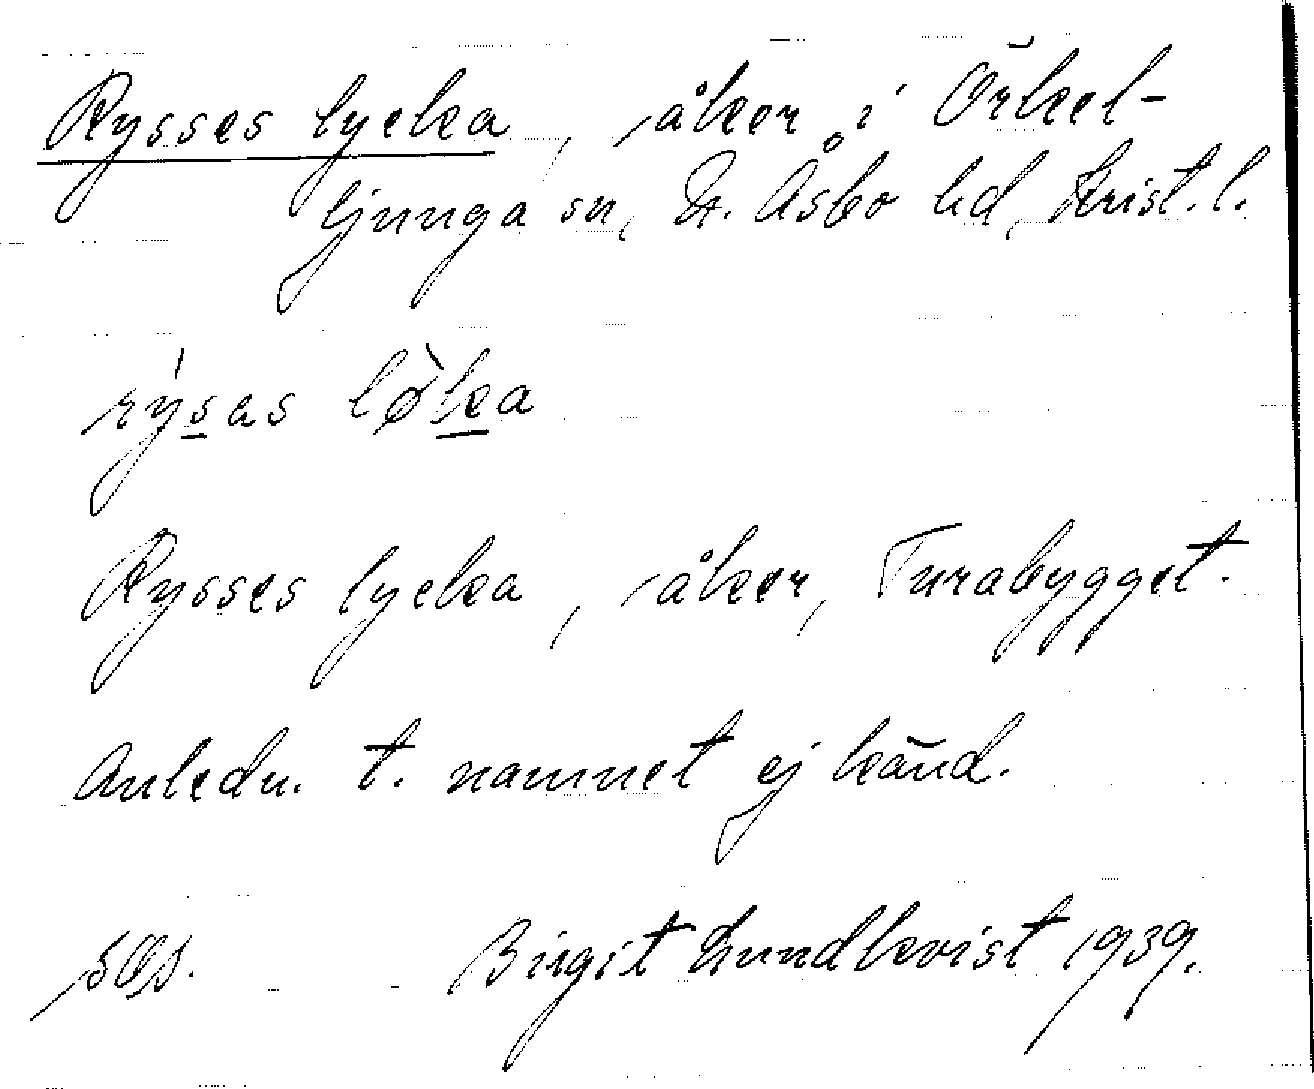 Rysses lycka, åker i Örkel-
ljunga sn, N. Åsbo hd, Krist. l.
rýsas lø̀ka
Rysses lycka, åker, Turabygget.
Anledn. t. namnet ej känd.
Birgit Lundkvist 1939.